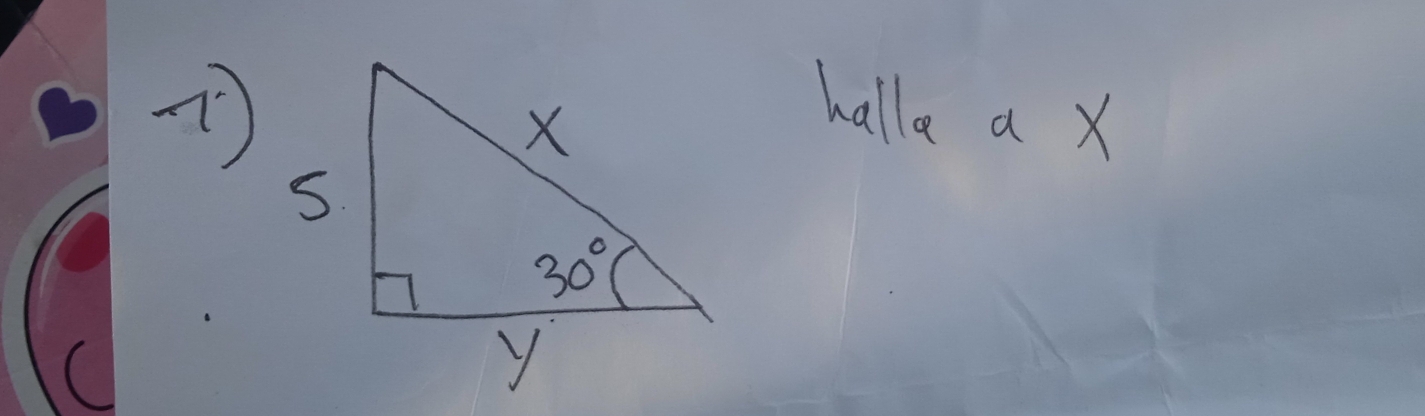 1) halla a X
X
5
30°
y